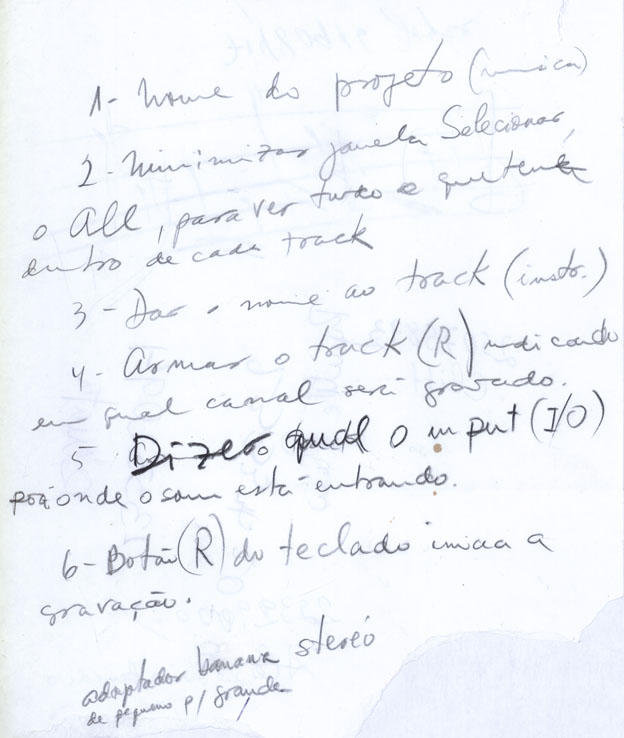 1- Nome do projeto (música)
2- Minimizar janela Selecionar,
o All, para ver tudo o que tem
dentro de cada track
3- Dar o nome ao track (instr.)
4- Armar o track (R) indicando
em qual canal será gravado.
5 Dizer qual o input (I/O)
por onde o som está entrando.
6- Botão (R) do teclado inicia a
gravação.
adaptador banana stereo
de pequeno p/ grande